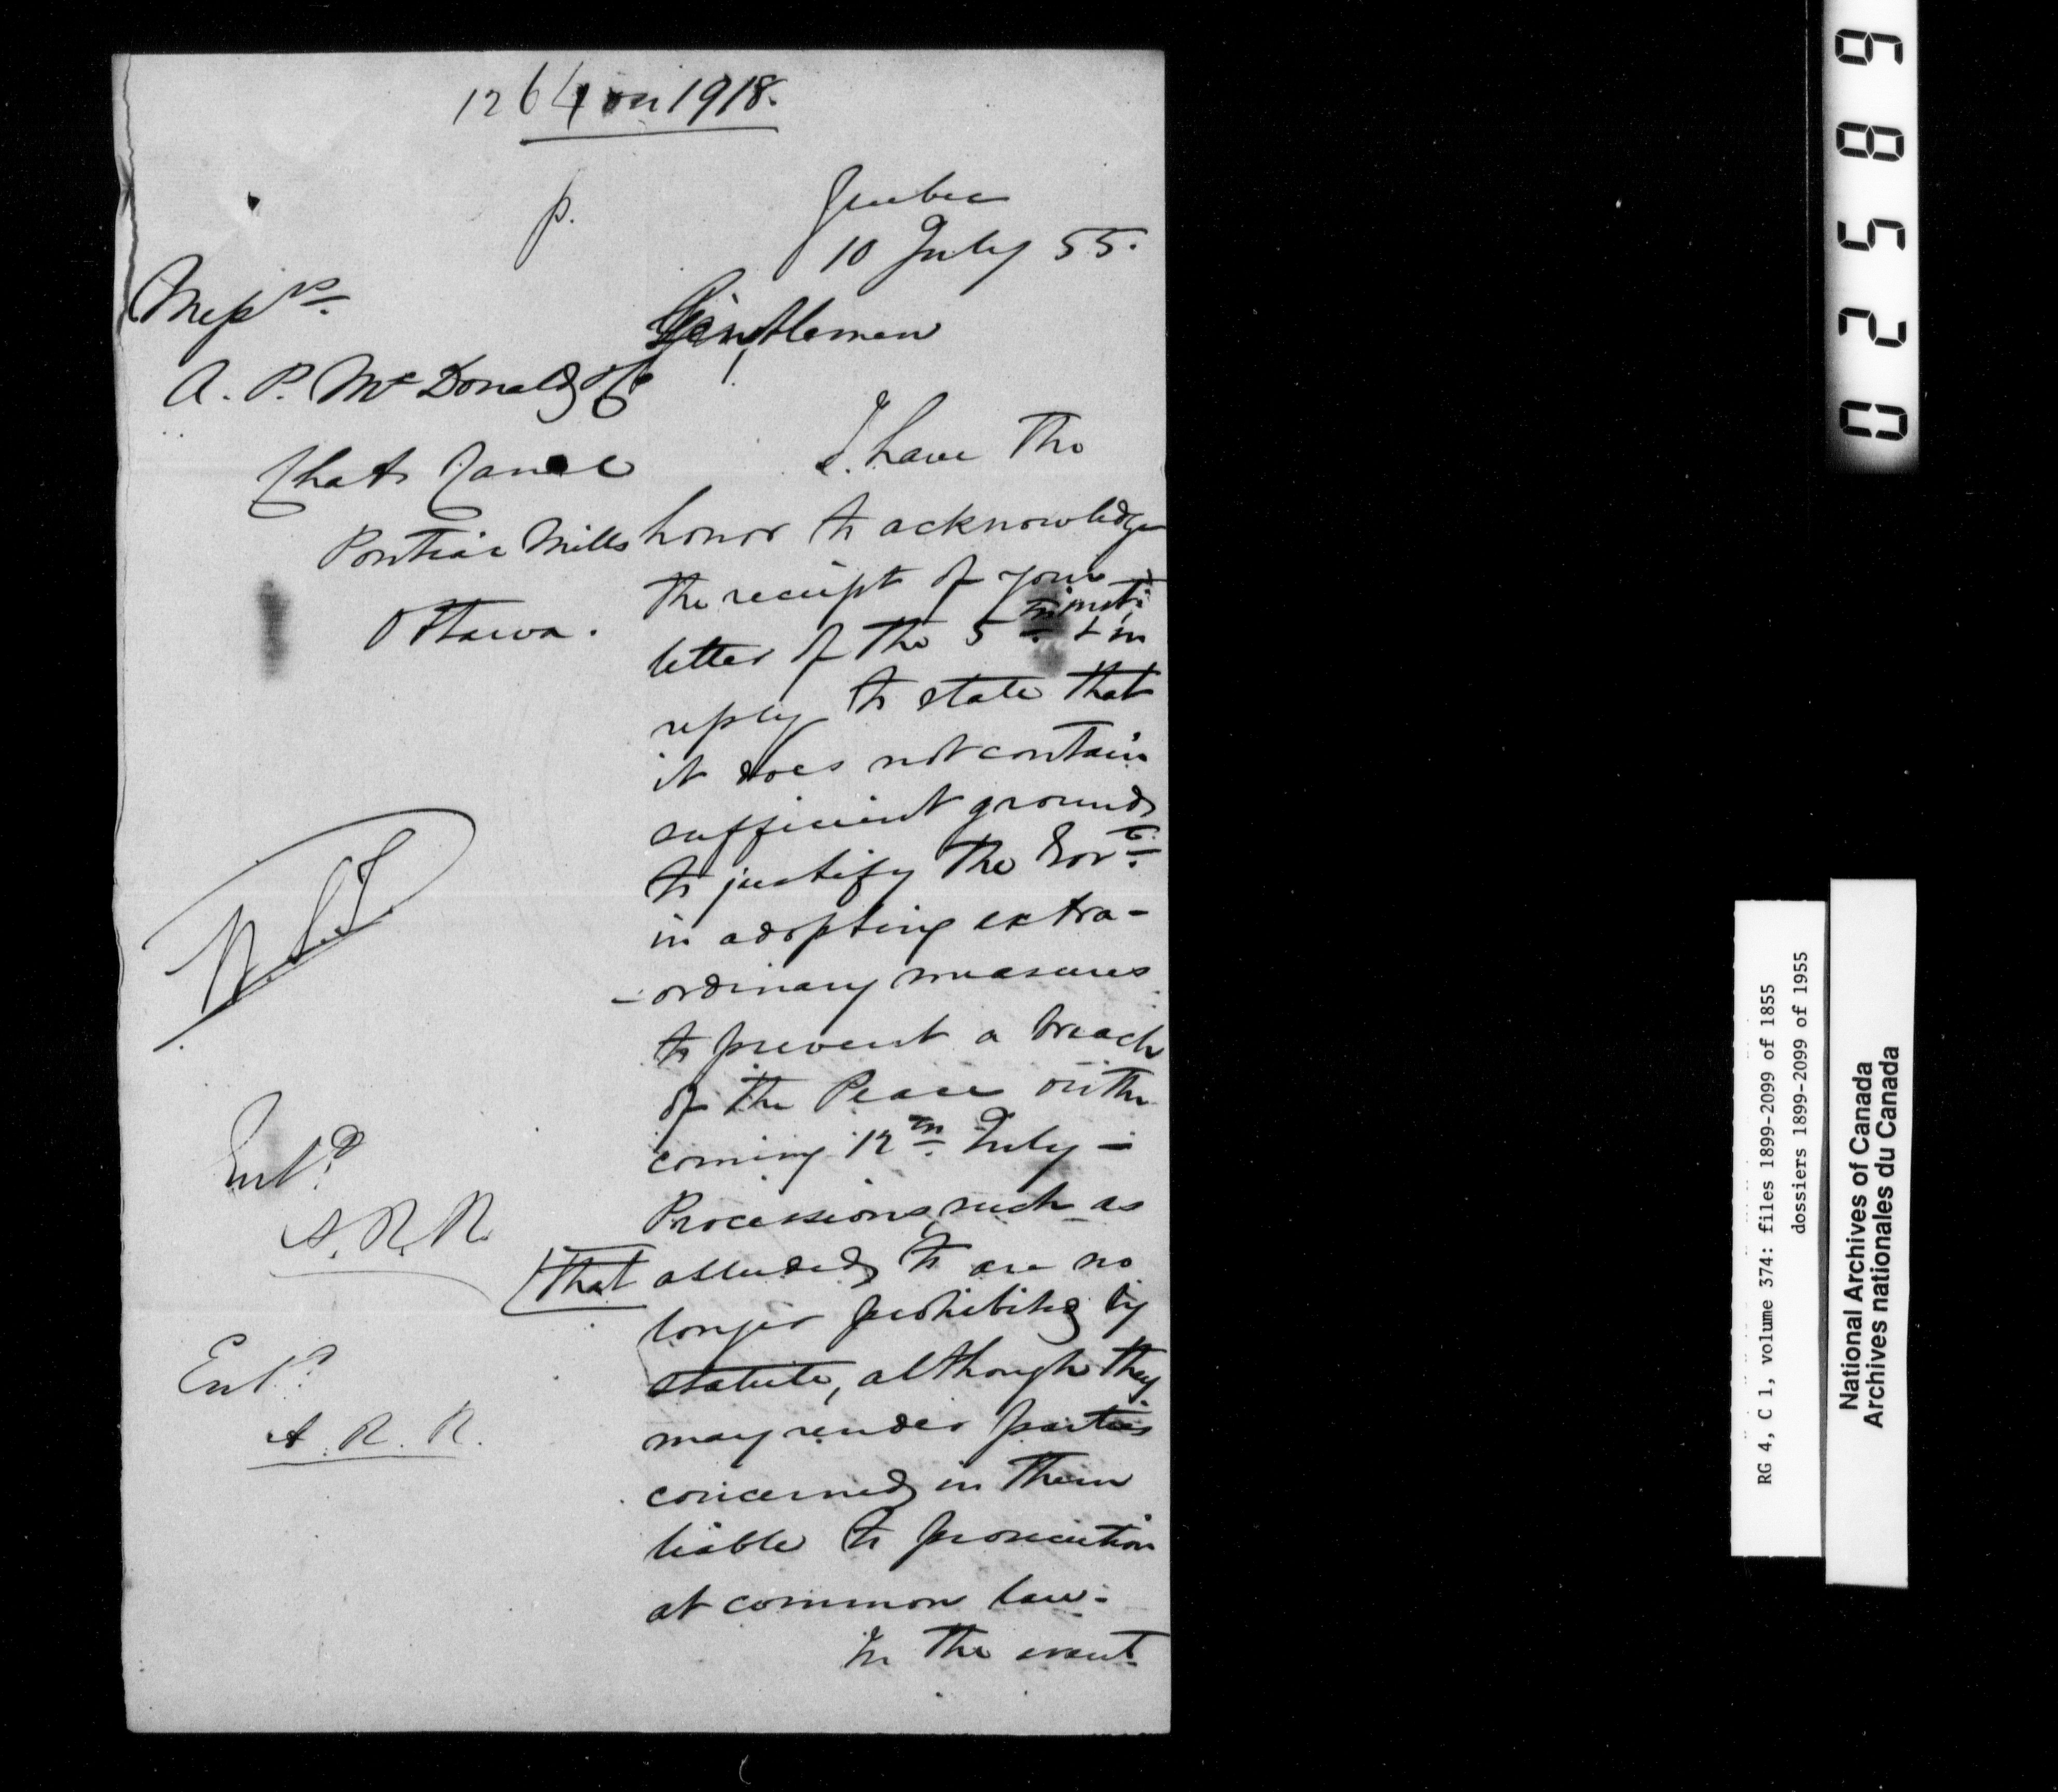 1264 on 1918.
p.
Quebec
10 July 55.
Messrs.
A. P. McDonald & Co
Chats Canal
Pontiac Mills
Ottawa.
Gentlemen
I have the
honor to acknowledge
the receipt of your
letter of the 5th inst: & in
reply to state that
it does not contain
sufficient grounds
to justify the Govt.
in adopting extra-
-ordinary measures
to prevent a breach
of the Peace on the
coming 12th July -
Processions, such as
that alluded to are no
longer prohibited by
statute, although they
may render parties
concerned in them
liable to prosecution
at common law.
In the event
Entd.
A. R. R.
Entd.
A. R. R.
02589
RG 4, C 1, volume 374: files 1899-2099 of 1855
dossiers 1899-2099 of 1955
National Archives of Canada
Archives nationales du Canada